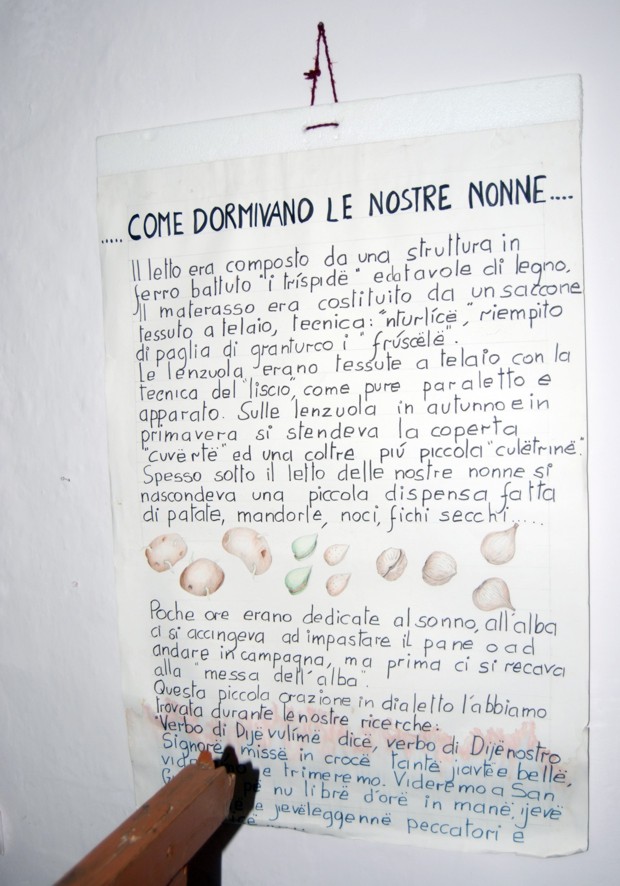 ..... COME DORMIVANO LE NOSTRE NONNE....
Il letto era composto da una struttura in
ferro battuto "i tríspidë" e da tavole di legno.
Il materasso era costituito da un saccone
tessuto a telaio, tecnica: "nturlícë", riempito
di paglia di granturco i "frúscëlë".
Le lenzuola erano tessute a telaio con la
tecnica del "liscio", come pure paraletto e
apparato. Sulle lenzuola in autunno e in
primavera si stendeva la coperta
"cuvërtë" ed una coltre piú piccola "culëtrinë".
Spesso sotto il letto delle nostre nonne si
nascondeva una piccola dispensa fatta
di patate, mandorle, noci, fichi secchi.....
Poche ore erano dedicate al sonno, all'alba
ci si accingeva ad impastare il pane o ad
andare in campagna, ma prima ci si recava
alla "messa dell'alba".
Questa piccola orazione in dialetto l'abbiamo
trovata durante le nostre ricerche:
"Verbo di Dijë vulímë dicë, verbo di Dijë nostro
Signorë missë in crocë tantë jiavtë e bellë,
e trimeremo. Videremo a San
pë nu librë d'orë in manë, jevë
e jevëleggennë peccatori e